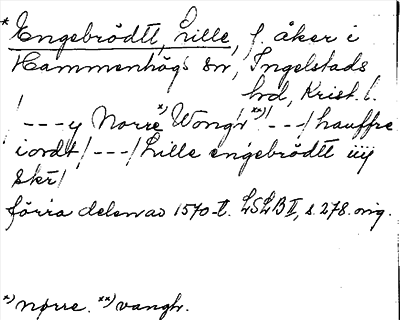 * Engebrödtt, Lille, f. åker i
Hammenhögs sn, Ingelstads
hd, Krist. l.
/---y Norre*) Wongh**)/---/hauffre
iordt/---/Lille engebrödtt iiij
skr/
förra delen av 1570-t. LSLB II, s. 278. orig.
*) nørre. **) vangh.